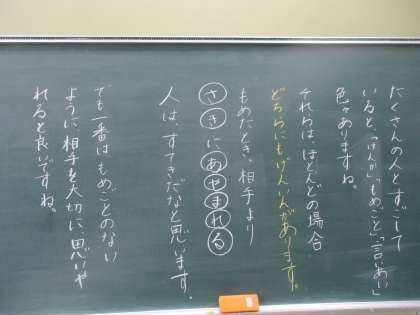 たくさんの人とすごして
いると、「けんか」「もめごと」「言いあい」
色々ありますね。
それらは、ほとんどの場合
どちらにもげんいんがあります。
もめたとき、相手より
さきにあやまれる
人は、すてきだなと思います。
でも一番はもめごとのない
ように、相手を大切に、思いや
れると良いですね。